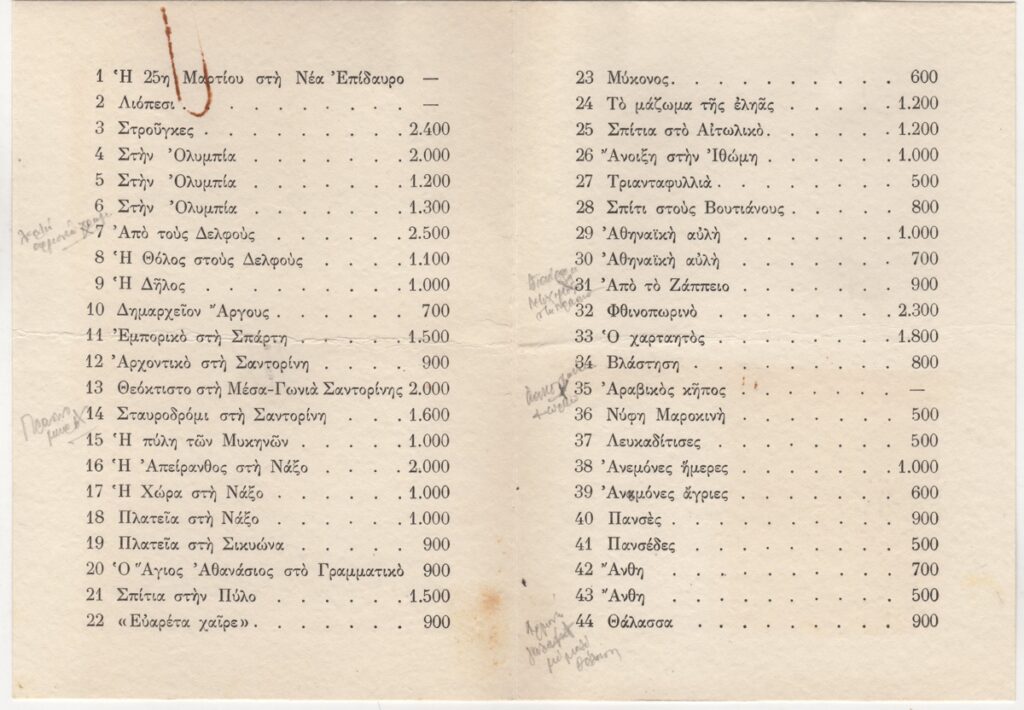 1 Ἡ 25η Μαρτίου στὴ Νέα Ἐπίδαυρο —
2 Λιόπεσι . . . . . . . . . —
3 Στροῦγκες . . . . . . . . 2.400
4 Στὴν Ὀλυμπία . . . . . . . 2.000
5 Στὴν Ὀλυμπία . . . . . . . 1.200
6 Στὴν Ὀλυμπία . . . . . . . 1.300
7 Ἀπὸ τοὺς Δελφούς . . . . . . 2.500
8 Ἡ Θόλος στοὺς Δελφοὺς . . . . 1.100
9 Ἡ Δῆλος . . . . . . . . 1.000
10 Δημαρχεῖον Ἄργους . . . . . 700
11 Ἐμπορικὸ στὴ Σπάρτη . . . . . 1.500
12 Ἀρχοντικὸ στὴ Σαντορίνη . . . . 900
13 Θεόκτιστο στὴ Μέσα-Γωνιὰ Σαντορίνης 2.000
14 Σταυροδρόμι στὴ Σαντορίνη . . . 1.600
15 Ἡ πύλη τῶν Μυκηνῶν . . . . . 1.000
16 Ἡ Ἀπείρανθος στὴ Νάξο . . . . 2.000
17 Ἡ Χώρα στὴ Νάξο . . . . . . 1.000
18 Πλατεῖα στὴ Νάξο . . . . . . 1.000
19 Πλατεῖα στὴ Σικυώνα . . . . . 900
20 Ὁ Ἅγιος Ἀθανάσιος στὸ Γραμματικὸ 900
21 Σπίτια στὴν Πύλο . . . . . . 1.500
22 «Εὐαρέτα χαῖρε» . . . . . . 900
23 Μύκονος . . . . . . . . . 600
24 Τὸ μάζωμα τῆς ἐληᾶς . . . . . 1.200
25 Σπίτια στὸ Αἰτωλικὸ . . . . . . 1.200
26 Ἄνοιξη στὴν Ἰθώμη . . . . . . 1.000
27 Τριανταφυλλιὰ . . . . . . . . 500
28 Σπίτι στοὺς Βουτιάνους . . . . . 800
29 Ἀθηναϊκὴ αὐλὴ . . . . . . . 1.000
30 Ἀθηναϊκὴ αὐλὴ . . . . . . . 700
31 Ἀπὸ τὸ Ζάππειο . . . . . . . 900
32 Φθινοπωρινὸ . . . . . . . . 2.300
33 Ὁ χαρταητὸς . . . . . . . . 1.800
34 Βλάστηση . . . . . . . . . 800
35 Ἀραβικὸς κῆπος . . . . . . . —
36 Νύφη Μαροκινὴ . . . . . . . 500
37 Λευκαδίτισες . . . . . . . . 500
38 Ἀνεμόνες ἥμερες . . . . . . . 1.000
39 Ἀνεμόνες ἄγριες . . . . . . . 600
40 Πανσὲς . . . . . . . . . . 900
41 Πανσέδες . . . . . . . . . 500
42 Ἄνθη . . . . . . . . . . 700
43 Ἄνθη . . . . . . . . . . 500
44 Θάλασσα . . . . . . . . . 900